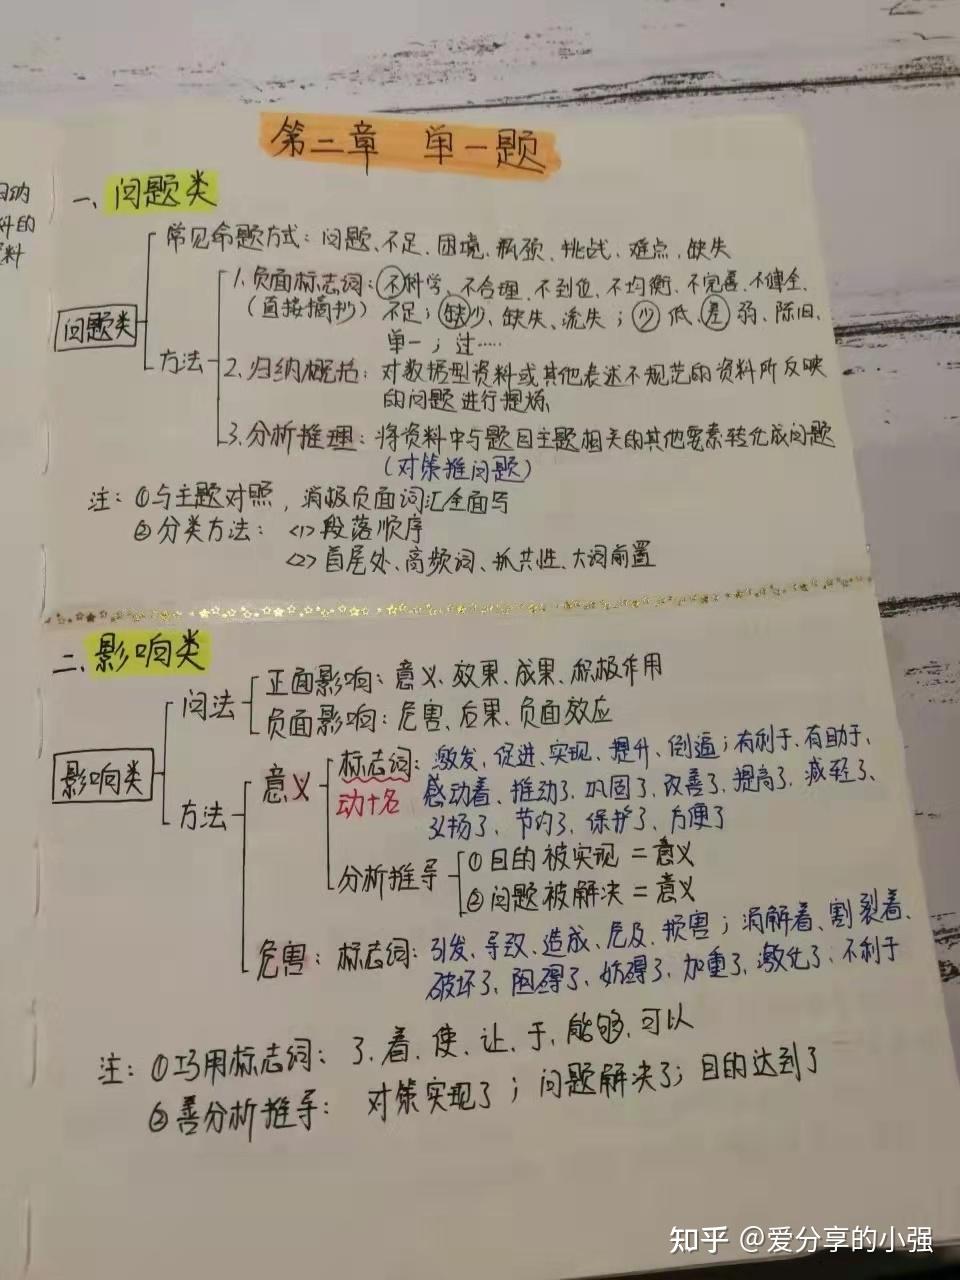 第二章 单一题
归纳
料的
料
一、问题类
常见命题方式：问题、不足、困境、瓶颈、挑战、难点、缺失
问题类
方法
1.负面标志词：不科学、不合理、不到位、不均衡、不完善、不健全、
（直接摘抄） 不足；缺少、缺失、流失；少、低、差、弱、陈旧、
单一；过……
2.归纳概括：对数据型资料或其他表述不规范的资料所反映
的问题进行提炼
3.分析推理：将资料中与题目主题相关的其他要素转化成问题
（对策推问题）
注：①与主题对照，消极负面词汇全面写
②分类方法：<1>段落顺序
<2>首尾处、高频词、抓共性、大词前置
二、影响类
问法
正面影响：意义、效果、成果、积极作用
负面影响：危害、后果、负面效应
影响类
方法
意义
标志词：激发、促进、实现、提升、倒逼；有利于、有助于、
动+名 感动着、推动了、巩固了、改善了、提高了、减轻了、
弘扬了、节约了、保护了、方便了
分析推导
①目的被实现=意义
②问题被解决=意义
危害：标志词：引发、导致、造成、危及、损害；消解着、割裂着、
破坏了、阻碍了、妨碍了、加重了、激化了、不利于
注：①巧用标志词：了、着、使、让、于、能够、可以
②善分析推导：对策实现了；问题解决了；目的达到了
知乎 @爱分享的小强